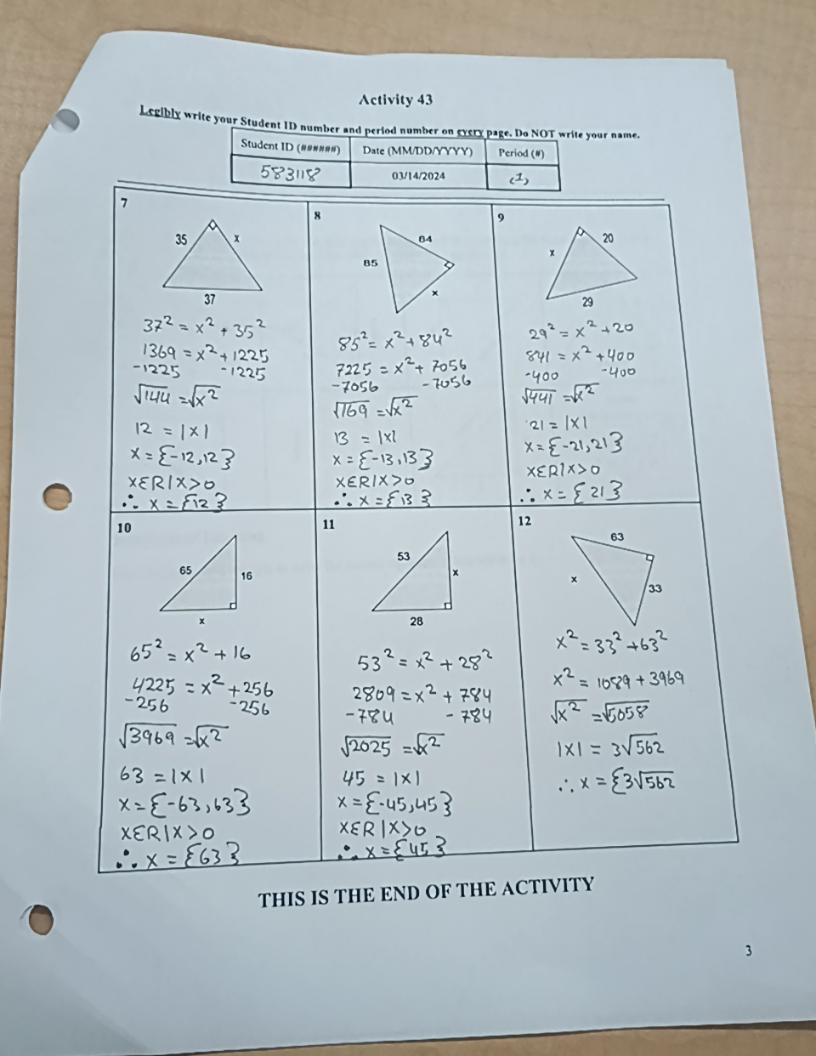 Activity 43
Legibly write your Student ID number and period number on every page. Do NOT write your name.
Student ID (######) Date (MM/DD/YYYY) Period (#)
583118 03/14/2024 (1)
7
35 x
37
37² = x² + 35²
1369 = x² + 1225
-1225 -1225
√144 = √x²
12 = |x|
x = {-12,12}
xεR|x>0
∴ x = {12}
8
84
85
x
85² = x² + 84²
7225 = x² + 7056
-7056 -7056
√169 = √x²
13 = |x|
x = {-13,13}
xεR|x>0
∴ x = {13}
9
20
x
29
29² = x² + 20
841 = x² + 400
-400 -400
√441 = √x²
21 = |x|
x = {-21,21}
xεR|x>0
∴ x = {21}
10
65 16
x
65² = x² + 16
4225 = x² + 256
-256 -256
√3969 = √x²
63 = |x|
x = {-63,63}
xεR|x>0
∴ x = {63}
11
53
x
28
53² = x² + 28²
2809 = x² + 784
-784 -784
√2025 = √x²
45 = |x|
x = {-45,45}
xεR|x>0
∴ x = {45}
12
63
x
33
x² = 33² + 63²
x² = 1089 + 3969
√x² = √5058
|x| = 3√562
∴ x = {3√562
THIS IS THE END OF THE ACTIVITY
3